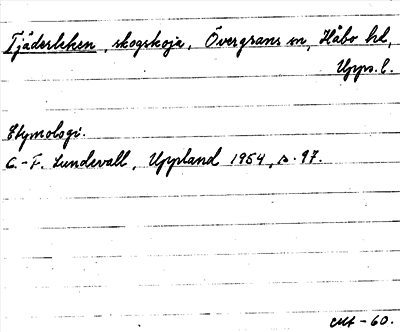 Tjäderleken, skogskoja, Övergrans sn, Håbo hd,
Upps. l.
Etymologi.
C.-F. Lundevall, Uppland 1954, s. 97.
-60.